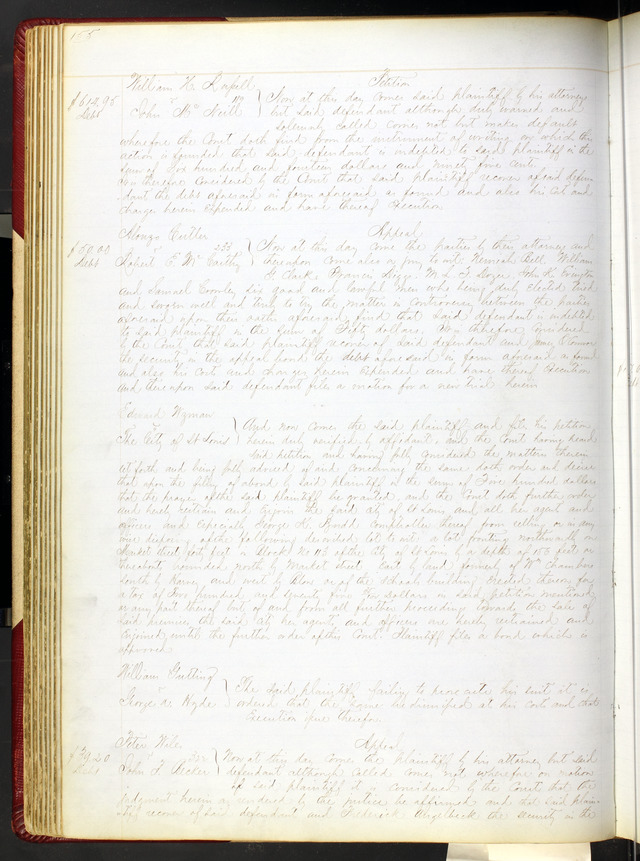 155
William H. Russell Petition
$614.95 vs 110 } Now at this day comes said plaintiff by his attorney
Debt John Mc Neill but said defendant although duly warned and
solemnly called comes not but makes default
wherefore the Court doth find from the instrument of writing on which this
action is founded that said defendant is indebted to said plaintiff in the
sum of Six hundred and fourteen dollars and ninety five cents
It is therefore considered by the Court that said plaintiff recover of said defen
dant the debt aforesaid in form aforesaid as found and also his cost and
charges herein expended and have thereof execution
Alonzo Cutler Appeal
$50.00 vs 233 } Now at this day come the parties by their attorneys and
Debt Robert F. Mc Carthy thereupon come also a jury to wit: Nemiah Bell William
H. Clark Francis
and Samuel Crowley six good and lawful men who being duly elected tried
and sworn well and truly to try the matter in controversy between the parties
aforesaid upon their oaths aforesaid find that said defendant is indebted
to said plaintiff in the sum of Fifty dollars. It is therefore considered
by the Court that said plaintiff recover of said defendant and James
the security in the appeal bond the debt aforesaid in form aforesaid as found
and also his costs and charges herein expended and have thereof execution
and thereupon said defendant files a motion for a new trial herein
Edward Wyman
vs } And now comes the said plaintiff and files his petition
The City of St Louis herein duly verified by affidavit, and the Court having heard
said petition and having fully considered the matters therein
set forth and being fully advised of and concerning the same doth order and decree
that upon the filing of a bond by said plaintiff in the sum of Five hundred dollars
that the prayer of the said plaintiff be granted, and the Court doth further order
and hereby restrain and enjoin the said City of St Louis, and all her agents and
officers and especially George K. Budd Comptroller thereof from selling or in any
wise disposing of the following described lot to wit: a lot fronting northwardly on
Market street feet in Block No 113 of the City of St Louis by a depth of 153 feet or
thereabouts bounded north by Market street East by land formerly of Wm Chambers
south by and west by or of the schools building erected thereon for
a tax of Two hundred and seventy five dollars in said petition mentioned
or any part thereof but of and from all further proceedings towards the sale of
said premises the said City her agents and officers are hereby restrained and
enjoined until the further order of this Court. Plaintiff files a bond which is
approved
William Gutting
vs } The said plaintiff failing to prosecute his suit it is
George de Hyde ordered that the same be dismissed at his costs and that
Execution issue therefor
Peter Wile Appeal
vs 322 } Now at this day comes the plaintiff by his attorney but said
Debt John F. Becker defendant although called comes not wherefore on motion
of said plaintiff it is considered by the Court that the
judgment herein as rendered by the justice be affirmed and that said plain
tiff recover of said defendant and Frederick the security in the